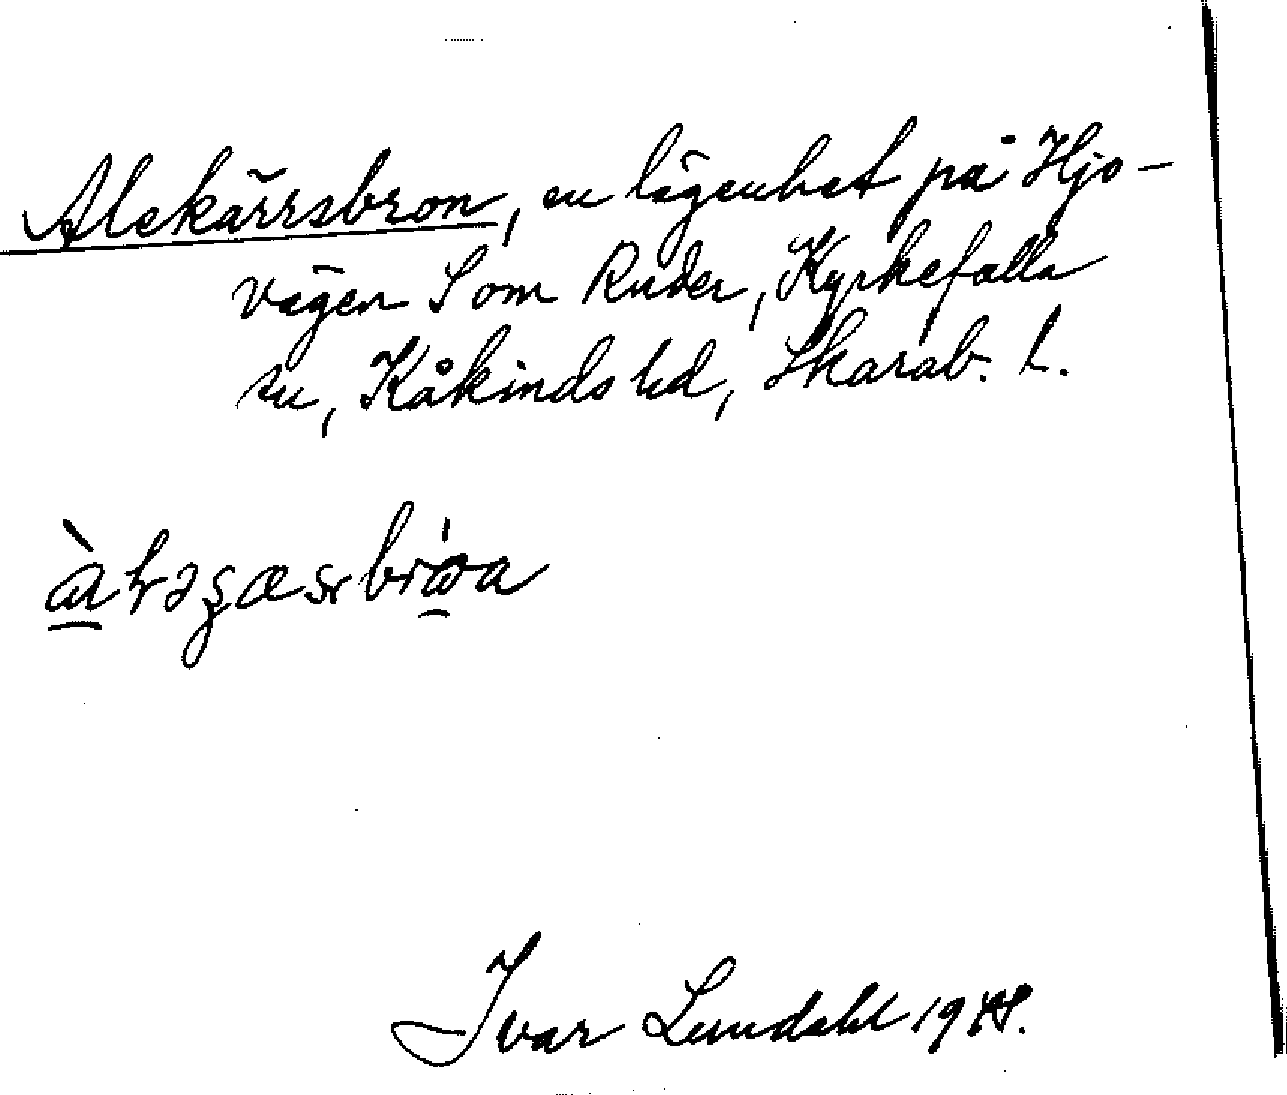 Alekärrsbron, en lägenhet på Hjo-
vägen S om Ruder, Kyrkefalla
sn, Kåkinds hd, Skarab. l.
Ivar Lundahl